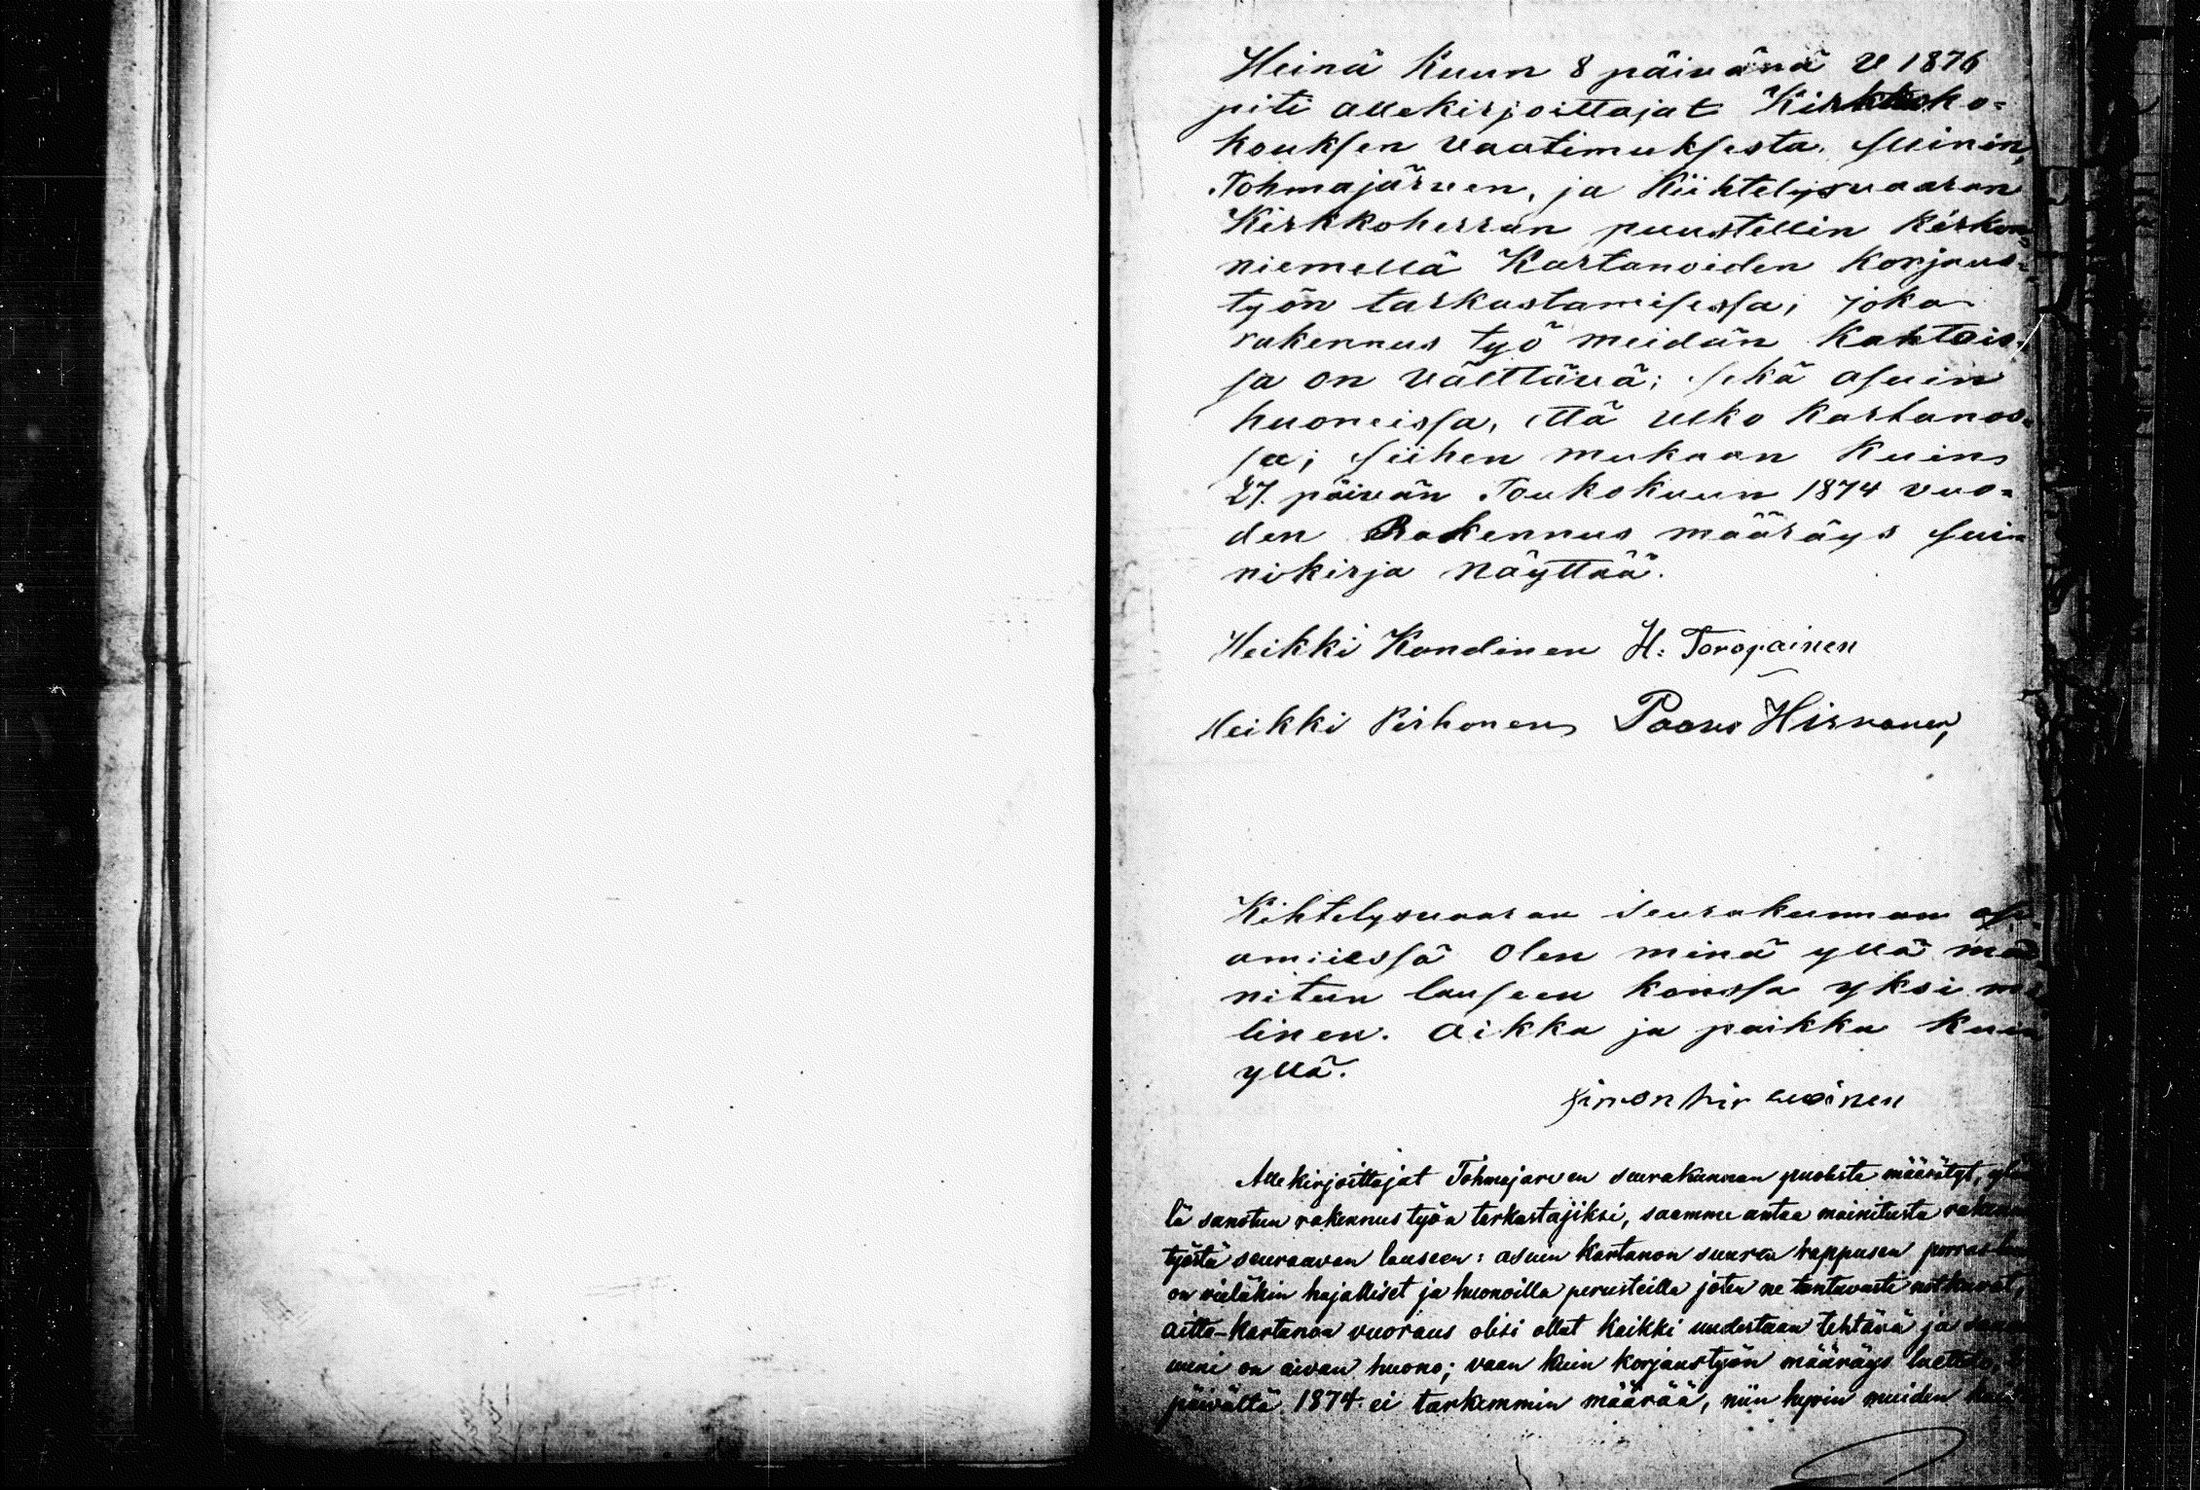 Heinä Kuun 8 päivänä V 1876
piti allekirjoittajat Kirkkoko=
kouksen vaatimuksesta,
Tohmajärven, ja Kiihtelysvaaran
Kirkkoherran puustellin Kirkon=
niemellä Kartanoiden Korjaus=
työn tarkastamisessa; joka
rakennus työ meidän Kahtois=
sa on välttävä; sekä asuin
huoneissa, että ulko Kartanos=
sa; siihen mukaan Kuin
27. päivän Toukokuun 1874 vuo=
den Rakennus määräys
nökirja näyttää.
Heikki Kondinen H: Toropainen
Heikki Pirhonen Paavo Hirvonen,
Kihtelysvaaran seurakunnan
amiessä olen minä yllä
nitun lauseen kanssa yksi
linen. Aikka ja paikka Kuin
yllä.
Simon
Allekirjoittajat Tohmajarven seurakunnan puolista määrätyt,
lä sanotun rakennus työn tarkastajiksi, saamme antaa mainitusta
työstä seuraavan lauseen: asuin Kartanon suuren rappusen
on vieläkin hajalliset ja huonoilla perusteilla joten ne tuntuvasti notkuvat,
aitta-Kartanon vuoraus olisi ollut kaikki uudestaan tehtävä ja
uuni on aivan huono; vaan kuin korjaustyön määräys
päivältä 1874 ei tarkemmin määrää, niin muiden